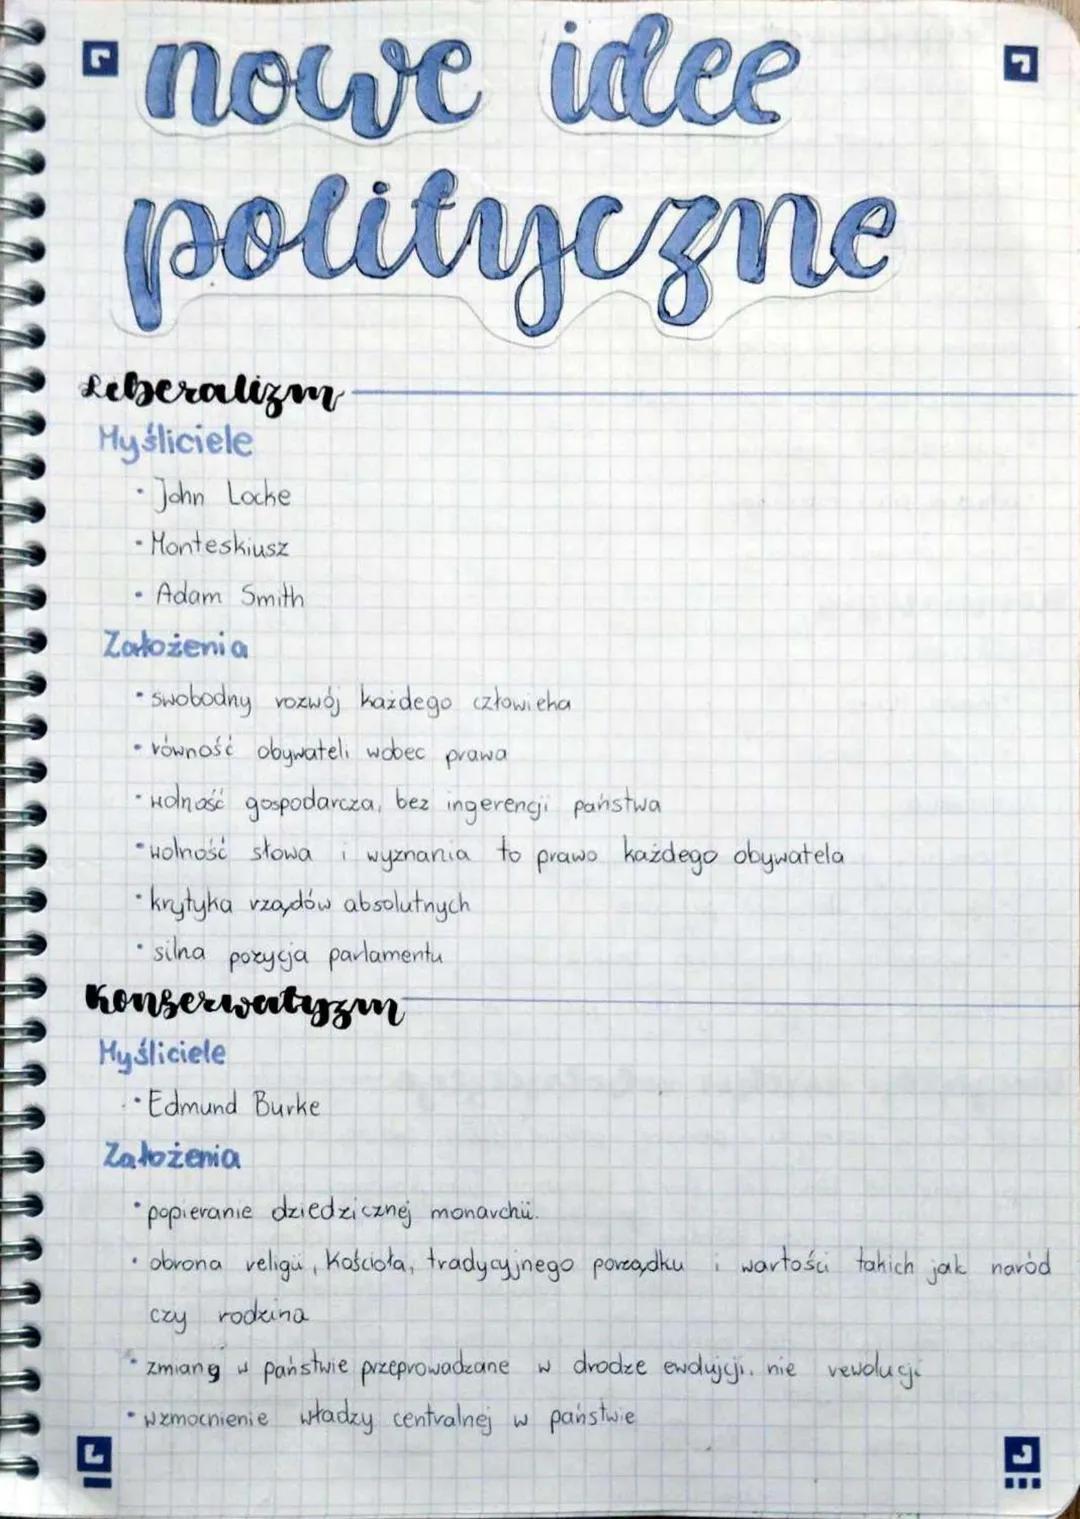 nowe idee
polityczne
Liberalizm
Myśliciele
• John Locke
• Monteskiusz
• Adam Smith
Założenia
• swobodny rozwój każdego człowieka
• równość obywateli wobec prawa
• wolność gospodarcza, bez ingerencji państwa
• wolność słowa i wyznania to prawo każdego obywatela
• krytyka rządów absolutnych
• silna pozycja parlamentu
Konserwatyzm
Myśliciele
• Edmund Burke
Założenia
• popieranie dziedzicznej monarchii.
• obrona religii, Kościoła, tradycyjnego porządku i wartości takich jak naród
czy rodzina
• zmiany w państwie przeprowadzane w drodze ewolucji, nie rewolucji
• wzmocnienie władzy centralnej w państwie